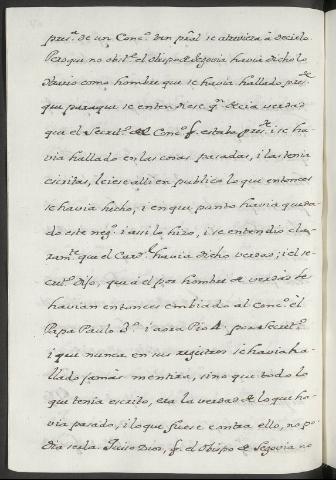 pres.te de un Conc.o Gen.l se atreviera à decirlo.
Pero que no obst.e el obispo de Segovia havia dicho lo
como hombre que se havia hallado pres.te
que para que se entendiese q.e decia verdad
que el Secret.o del Conc.o estaba pres.te i se ha-
via hallado en las cosas pasadas, i las tenia
escritas, leiese alli en publico lo que entonces
se havia hecho, i en que punto havia queda-
do este neg.o i asi lo hizo, i se entendió cla-
ram.te que el Card.l havia dicho verdad; i el se-
cret.o dijo, que à el por hombre de verdad le
havian entonces embiado al Conc.o el
Papa Paulo 3.o i aora Pio 4. por Secret.o
i que nunca en sus registros se havia ha-
llado jamàs mentira, sino que todo lo
que tenia escrito, era la verdad de lo que ha-
via pasado, i lo que fuese contra ello, no po-
dia serla. Quiso Dios, q. el obispo de Segovia no